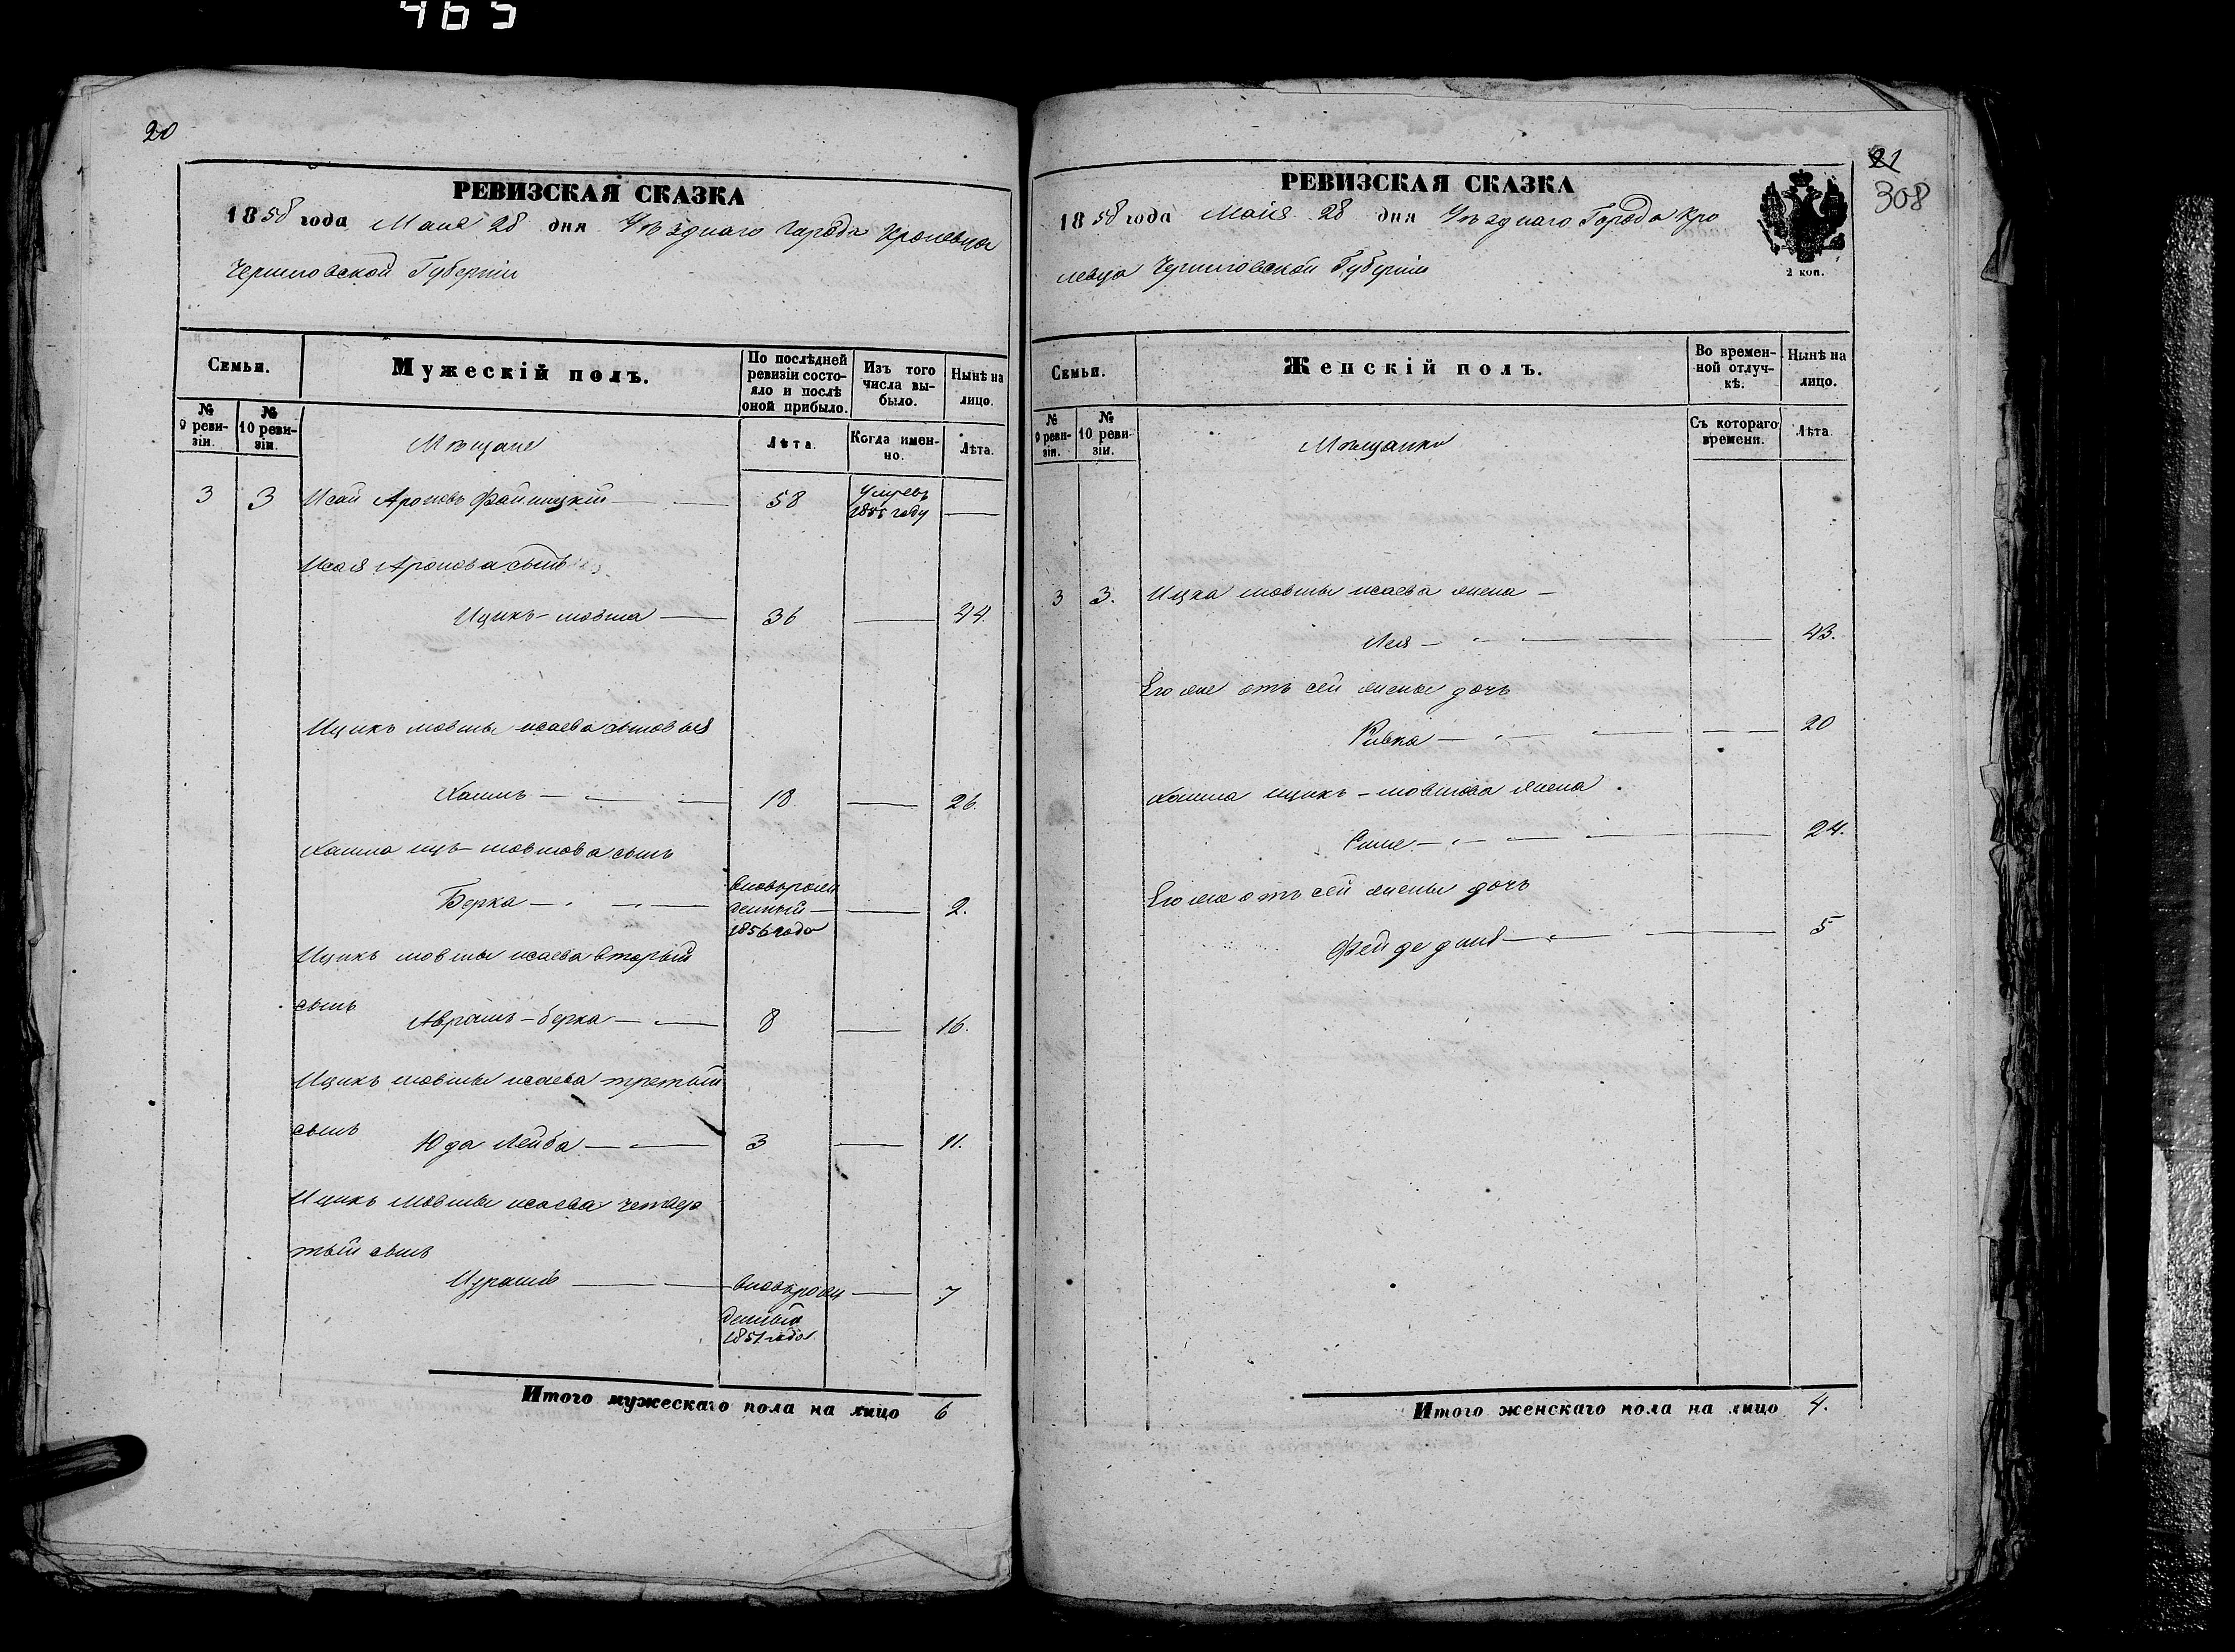 465
20
РЕВИЗСКАЯ СКАЗКА
1858 года Маия 28 дня Уѣзднаго Города Кролевца
Черниговской Губерніи
Семьи.
Мужескій полъ.
По послѣдней ревизіи состояло и послѣ оной прибыло.
Изъ того числа выбыло.
Нынѣ на лицо.
№ 9 ревизіи.
№ 10 ревизіи.
Мѣщане
Лѣта.
Когда именно.
Лѣта.
3 3 Исай Ароновъ 58 умеръ
185 году
Исая Аронова сынъ
Ицикъ-мовша 36 44.
Ицикъ мовши исаева сыновья
Хаимъ 18 26.
Хаима иц-мовшова сынъ
Берка вновьрож
денный 2.
1856 года
Ицикъ мовши исаева вторый
сынъ Аврамъ-берка 8 16.
Ицикъ мовши исаева третый
сынъ Юда Лейба 3 11.
Ицикъ мовши исаева четвер
тый сынъ
вновьрож 7
денный
1851 года
Итого мужескаго пола на лицо 6
21
308
РЕВИЗСКАЯ СКАЗКА
1858 года Маия 28 дня Уѣзднаго Города Кро
левца Черниговской Губерніи
2 коп.
Семьи.
Женскій полъ.
Во временной отлучкѣ.
Нынѣ на лицо.
№ 9 ревизіи.
№ 10 ревизіи.
Мѣщанки
Съ котораго времени.
Лѣта.
3 3. Ицка мовши исаева жена
Лея 43.
Его же отъ сей жены дочь
Ривка 20
Хаима ицикъ-мовшова жена
24.
Его же отъ сей жены дочь
5
Итого женскаго пола на лицо 4.